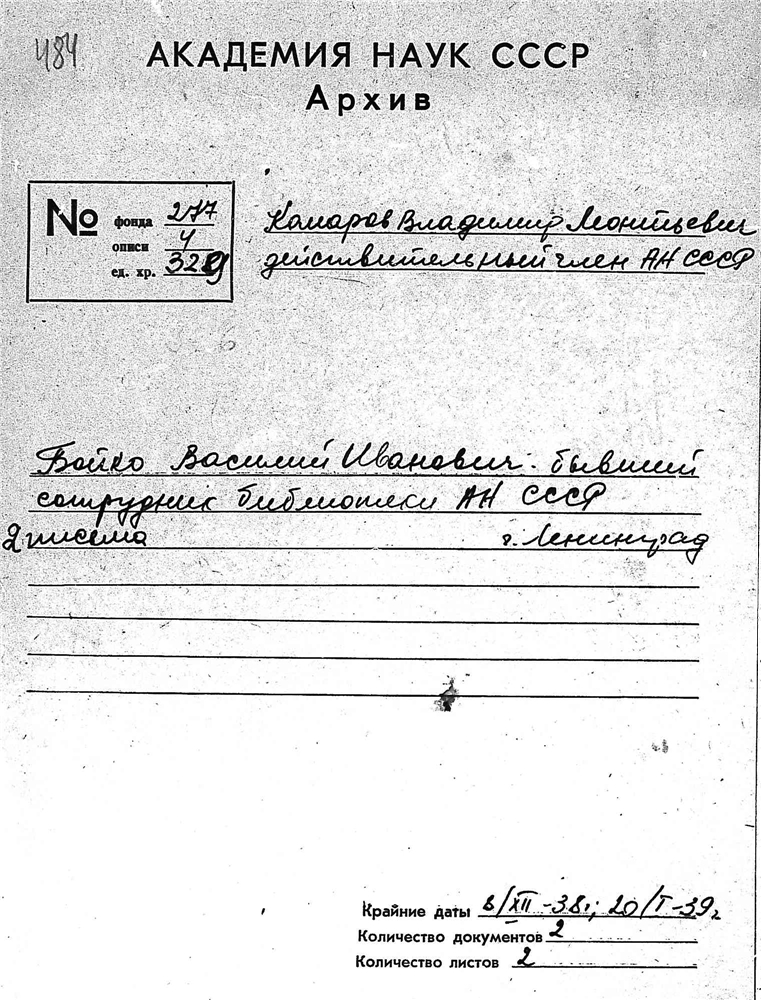 484
АКАДЕМИЯ НАУК СССР
Архив
№ фонда 277
описи 4
ед. хр. 329
Комаров Владимир Леонтьевич
действительный член АН СССР
Бойко Василий Иванович - бывший
сотрудник библиотеки АН СССР
2 письма г. Ленинград
Крайние даты 8/XII-38г; 20/I-39г
Количество документов 2
Количество листов 2